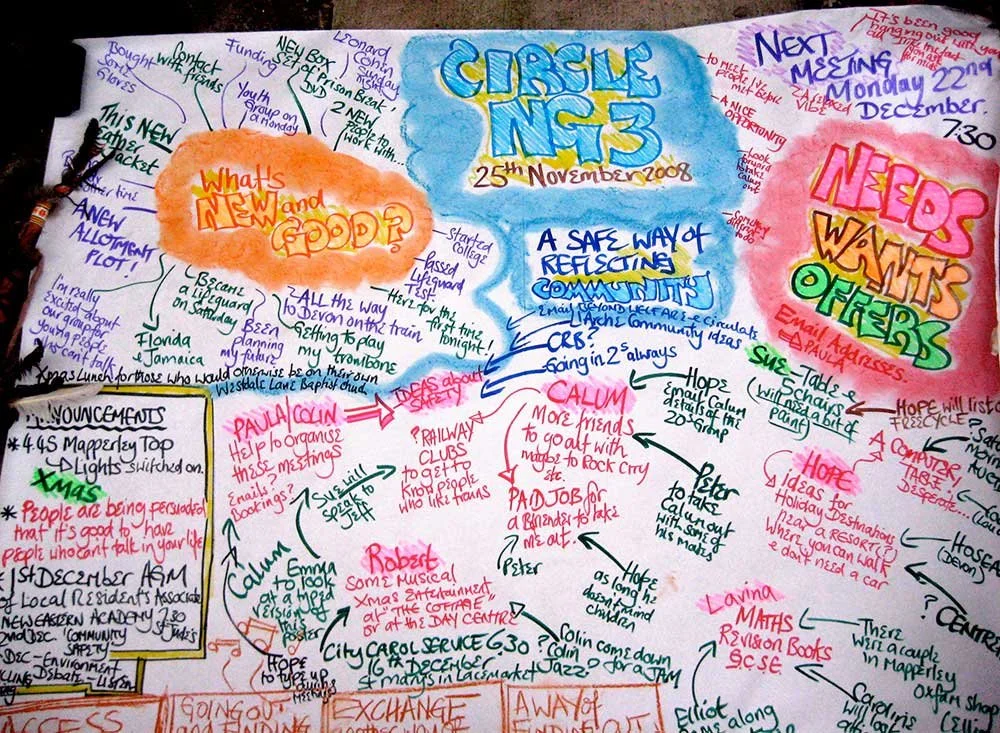 CIRCLE
NG3
25th November 2008
A SAFE WAY OF
REFLECTING
COMMUNITY
What's
NEW and
GOOD?
Bought
some
Gloves
Contact
with friends
Funding
Youth
Group on
a Monday
NEW BOX
SET OF Prison Break,
DVD
2 NEW
People to
work with...
Leonard
Cohen
Sunday
night
This NEW
Leather
Jacket
other time
A NEW
ALLOTMENT
PLOT!
I'm really
excited about
our group for
young people
who can't talk
Florida
& Jamaica
Became
a lifeguard
on Saturday
Been
planning
my future
ALL THE WAY
to Devon on the train
Getting to play
my trombone
Started
College
Passed
Lifeguard
Test
Here for the
first time
tonight!
NEXT
MEETING
Monday 22nd
December.
7:30
It's been good
hanging out with you
to meet
people I've
met before
A NICE
OPPORTUNITY
Look
forward
to take
Calum
out
Something
different
to do
NEEDS
WANTS
OFFERS
Email Addresses
PAULA
Email BEYOND WELFARE & circulate
L'Arche Community ideas
CRB?
Going in 2s always
IDEAS about
SAFETY
Xmas Lunch for those who would otherwise be on their own
Westdale Lane Baptist church
ANNOUNCEMENTS
* 445 Mapperley Top
Lights switched on.
Xmas
* People are being persuaded
that it's good to have
people who can't talk in your life
1st DECEMBER AGM
of Local Resident's Associate
NEW EASTERN ACADEMY 7.30
2nd DEC 'COMMUNITY St Jude's
SAFETY
DEC - Environment
Debate - Listen
PAULA/COLIN
Help to organise
these meetings
Emails?
Bookings?
Sue will
speak to
Jeff
? RAILWAY
CLUBS
to get to
know people
who like trains
CALUM
More friends
to go out with
maybe to ROCK CITY
etc.
PAID JOB for
a Befriender to take
me out.
Peter
Hope
email Calum
details of the
20+ Group
Peter
to take
Calum out
with some of
his mates
Hope
as long he
doesn't mind
children
SUE - Table &
5 chairs
(will need a bit of
paint)
HOPE will list on
FREECYCLE?
A COMPUTER
TABLE
Desperate...
HOPE
Ideas for
Holiday Destinations
near a
RESORT(?)
Where you can walk
& don't need a car
HOSEA
(DEVON)
? CENTRE
Calum
Emma
to look
at a typed
version of
this
poster
HOPE
to type up
Robert
Some Musical
Xmas Entertainment
at "THE COTTAGE"
or at the DAY CENTRE
City CAROL SERVICE 6.30
16th DECEMBER
St Marys in Lace market
? Colin
Jazz?
Colin come down
for a JAM
Lavina
MATHS
Revision Books
GCSE
There
were a couple
in Mapperley
Oxfam shop
Caroline
will look
Elliot
come along
ACCESS
GOING OUT
AND FINDING
EXCHANGE
A WAY OF
FINDING OUT